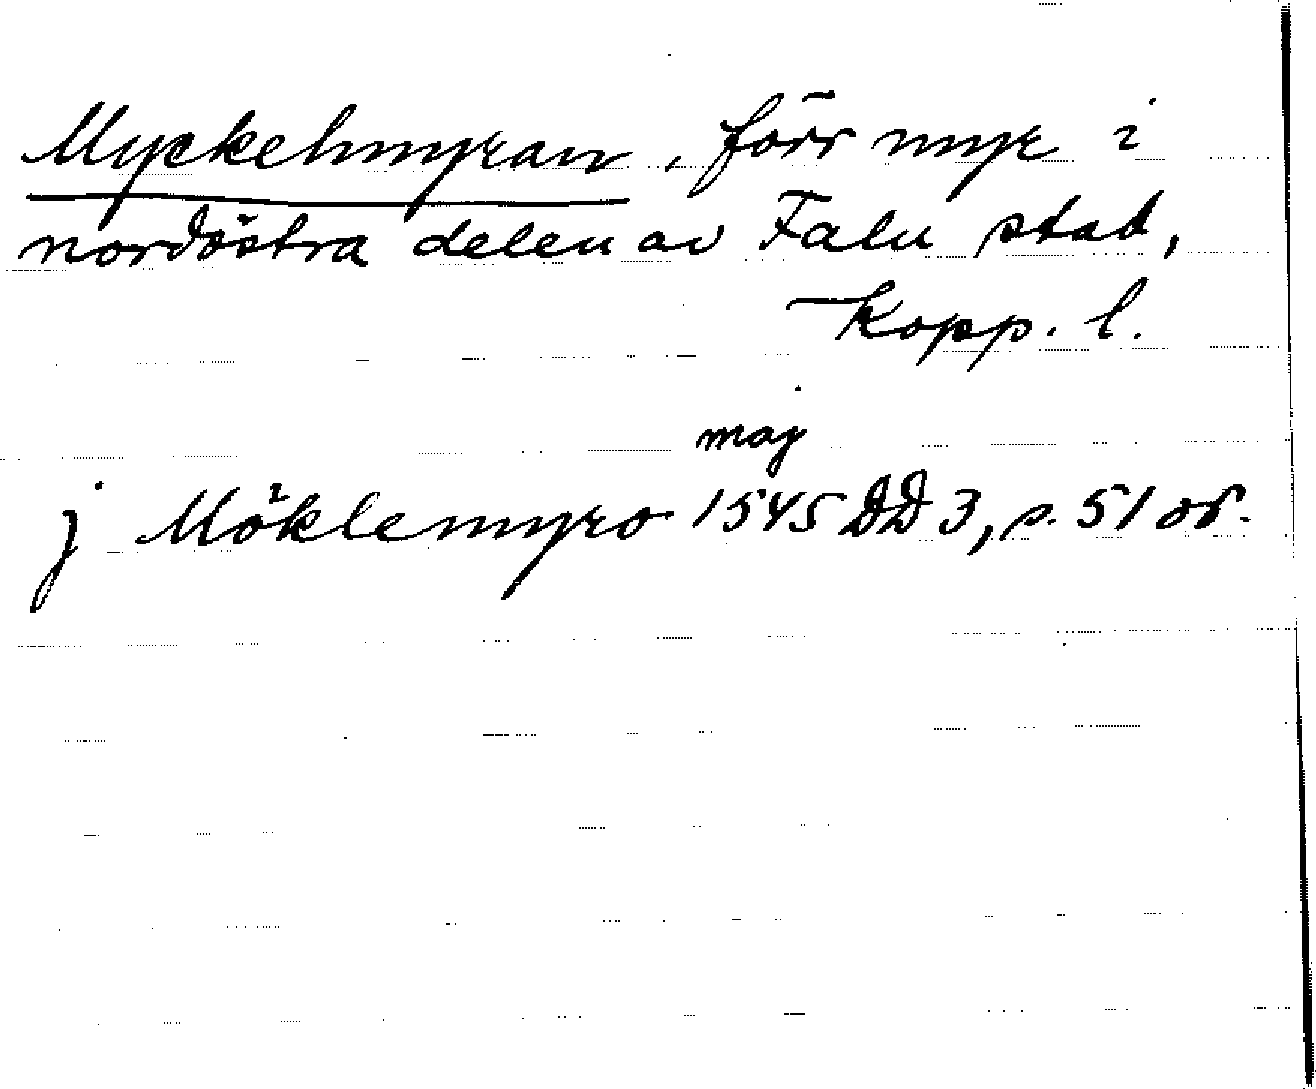 Myckelmyran, förr myr i
nordöstra delen av Falu stad,
Kopp. l.
maj
j Möklemyro 1545 DD 3, s. 51 or.